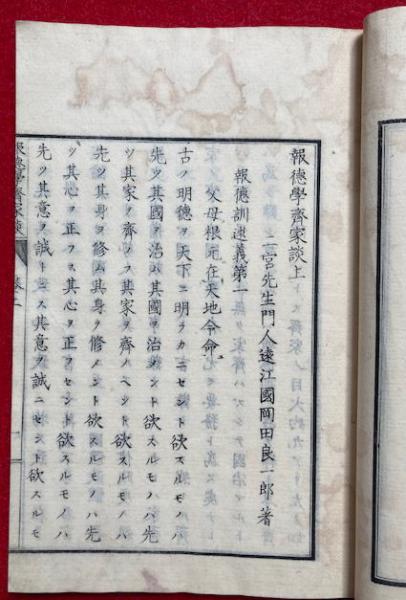 報德學齊家談上
二宮先生門人遠江國岡田良一郎著
報德訓述義第一
父母根元在天地令命ニ
古ノ明德ヲ天下ニ明ラカニセント欲スルモノハ
先ツ其國ヲ治ム其國ヲ治メント欲スルモノハ先
ツ其家ヲ齊フ其家ヲ齊ノヘント欲スルモノハ
先ツ其身ヲ修ム其身ヲ修メント欲スルモノハ先
ツ其心ヲ正フス其心ヲ正フセント欲スルモノハ
先ツ其意ヲ誠トニス其意ヲ誠ニセント欲スルモ
齊家談